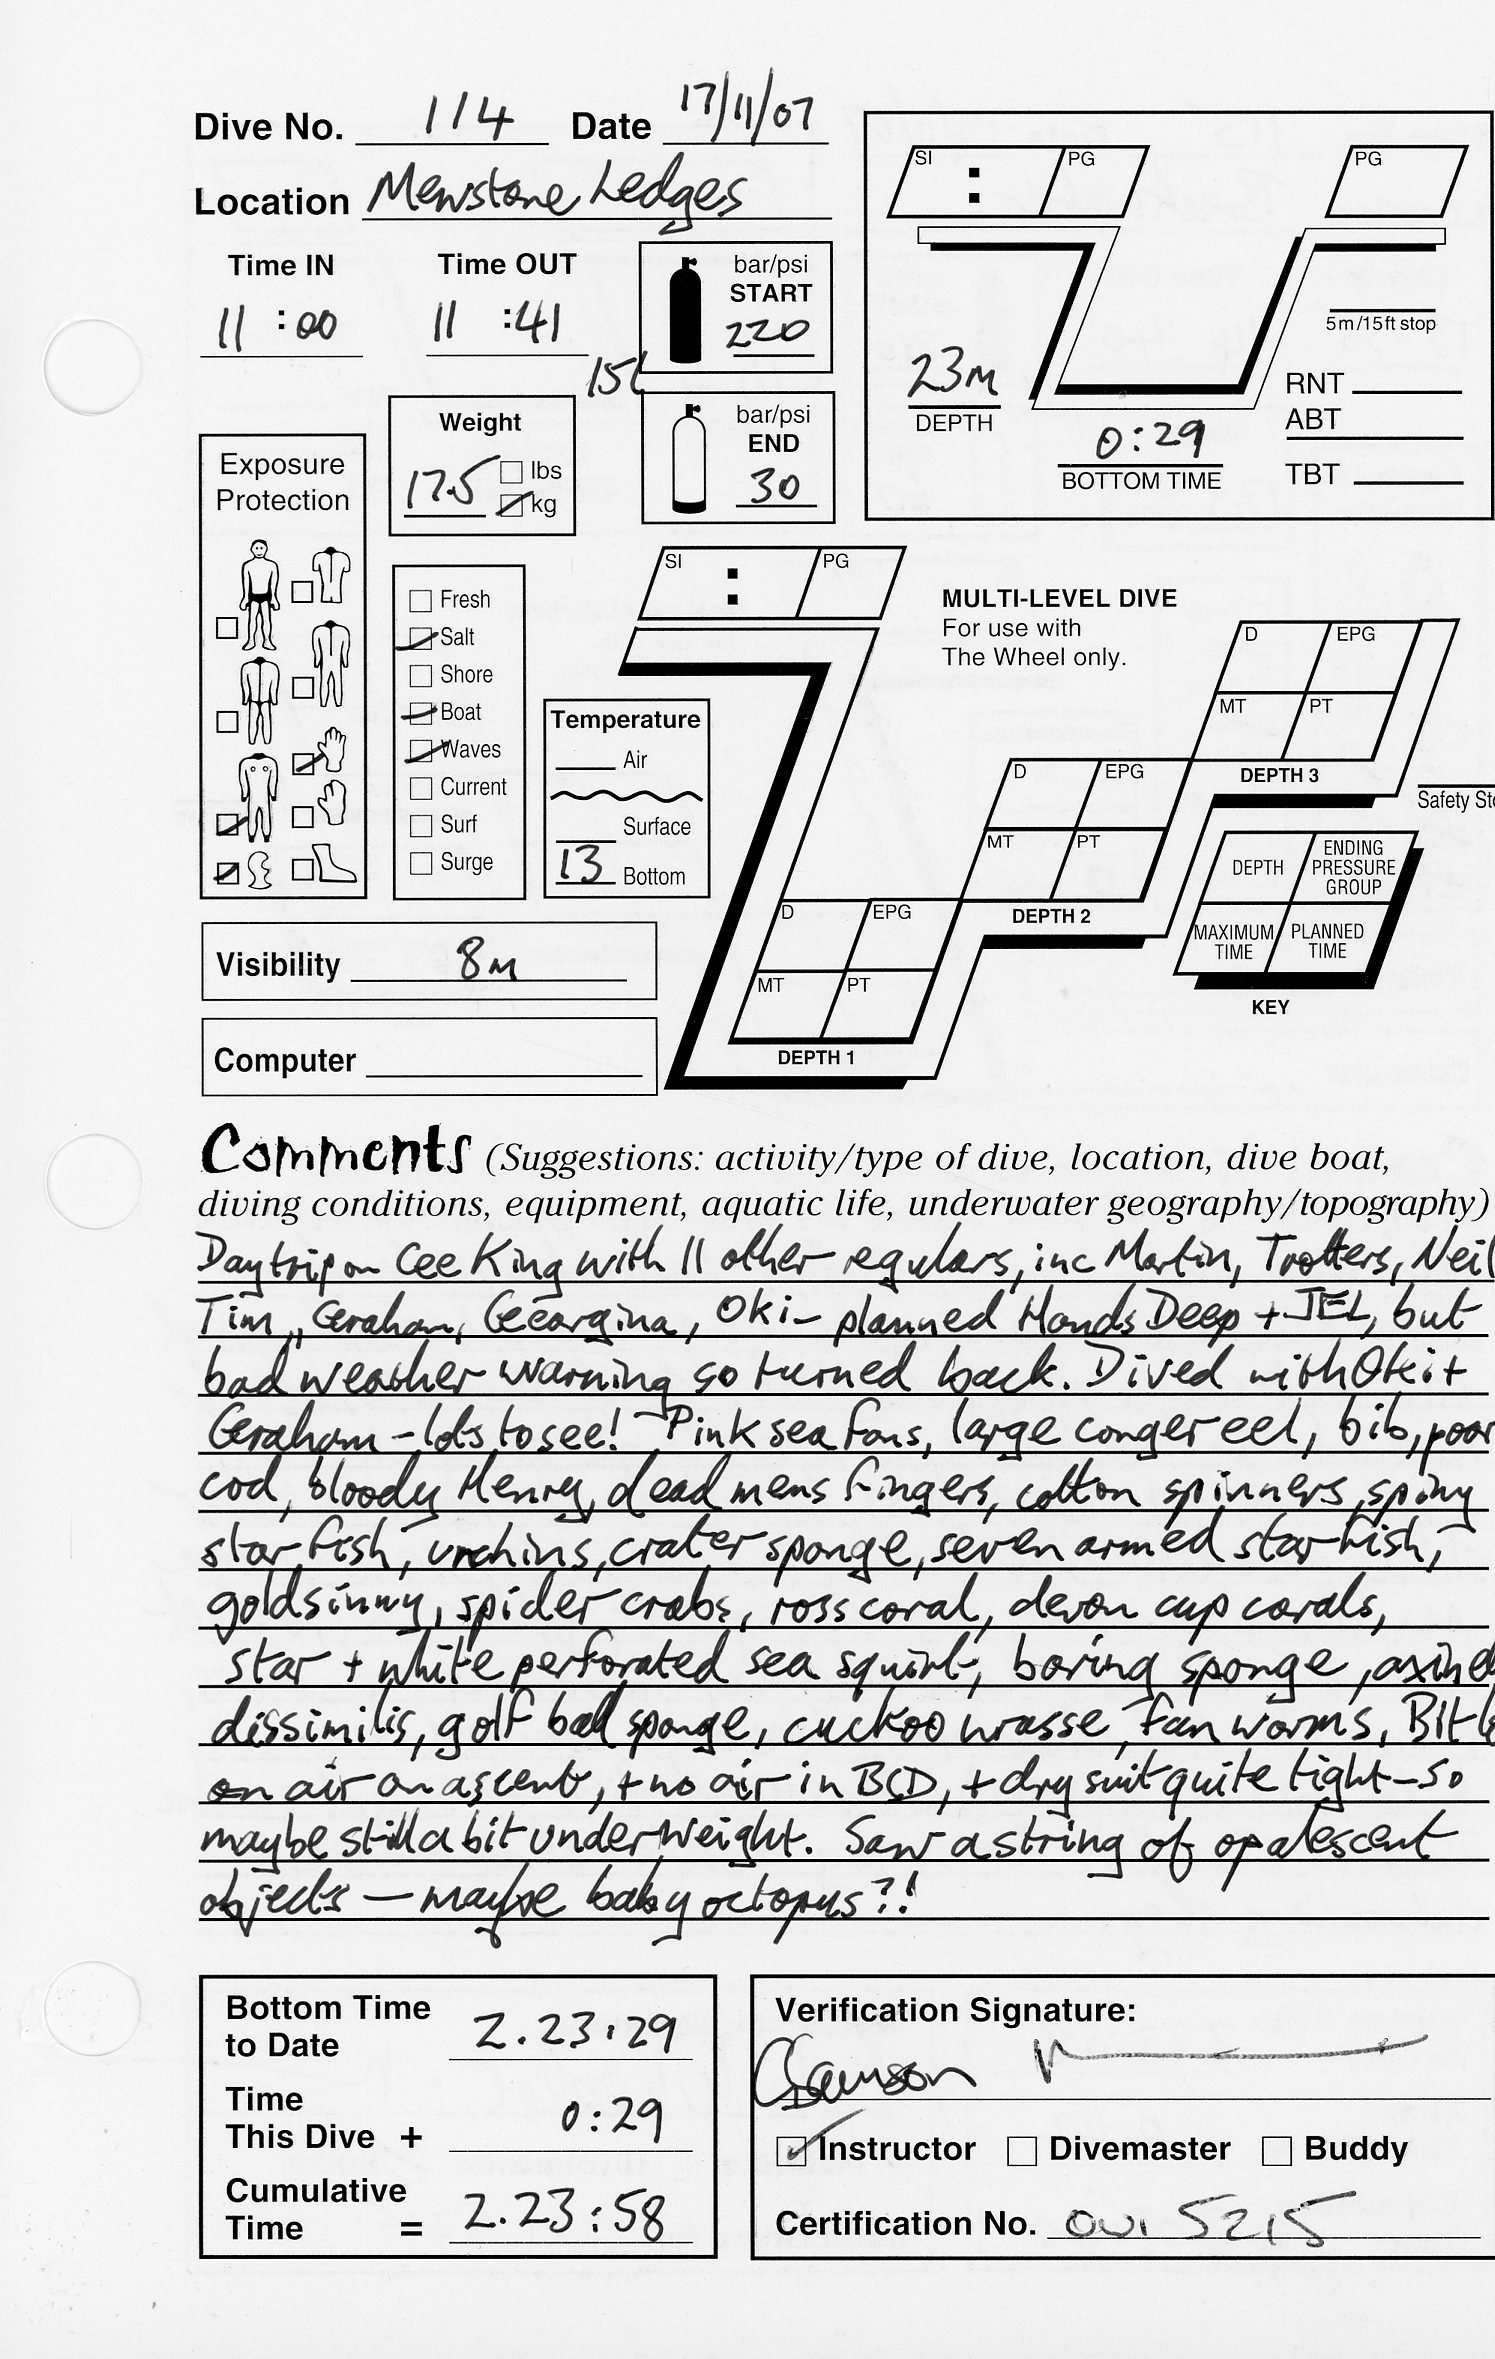 Dive No. 114 Date 17/11/07
Location Mewstone Ledges
Time IN Time OUT
11 : 00 11 : 41
15l
bar/psi
START
220
bar/psi
END
30
Weight
17.5
lbs
kg
Exposure
Protection
Fresh
Salt
Shore
Boat
Waves
Current
Surf
Surge
Temperature
Air
Surface
13 Bottom
Visibility 8m
Computer
SI : PG
PG
5m/15ft stop
23m
DEPTH
0:29
BOTTOM TIME
RNT
ABT
TBT
SI : PG
MULTI-LEVEL DIVE
For use with
The Wheel only.
D EPG
MT PT
DEPTH 3
D EPG
MT PT
DEPTH 2
D EPG
MT PT
DEPTH 1
Safety Sto
DEPTH
ENDING
PRESSURE
GROUP
MAXIMUM
TIME
PLANNED
TIME
KEY
Comments (Suggestions: activity/type of dive, location, dive boat,
diving conditions, equipment, aquatic life, underwater geography/topography)
Day trip on Cee King with 11 other regulars, inc Martin, Trotters, Neil
Tim, Graham, Georgina, Oki - planned Hands Deep + JEL, but
bad weather warning so turned back. Dived with Oki +
Graham - lots to see! Pink sea fans, large conger eel, bib, poor
cod, bloody Henry, dead mens fingers, cotton spinners, spiny
starfish, urchins, crater sponge, seven armed starfish,
goldsinny, spider crabs, ross coral, devon cup corals,
star + white perforated sea squirt, boring sponge, axinel
dissimilis, golf ball sponge, cuckoo wrasse, fan worms, Bit l
on air on ascent, + no air in BCD, + dry suit quite tight - so
maybe still a bit underweight. Saw a string of opalescent
objects - maybe baby octopus?!
Bottom Time
to Date 2.23:29
Time
This Dive + 0:29
Cumulative
Time = 2.23:58
Verification Signature:
Instructor Divemaster Buddy
Certification No. 5215